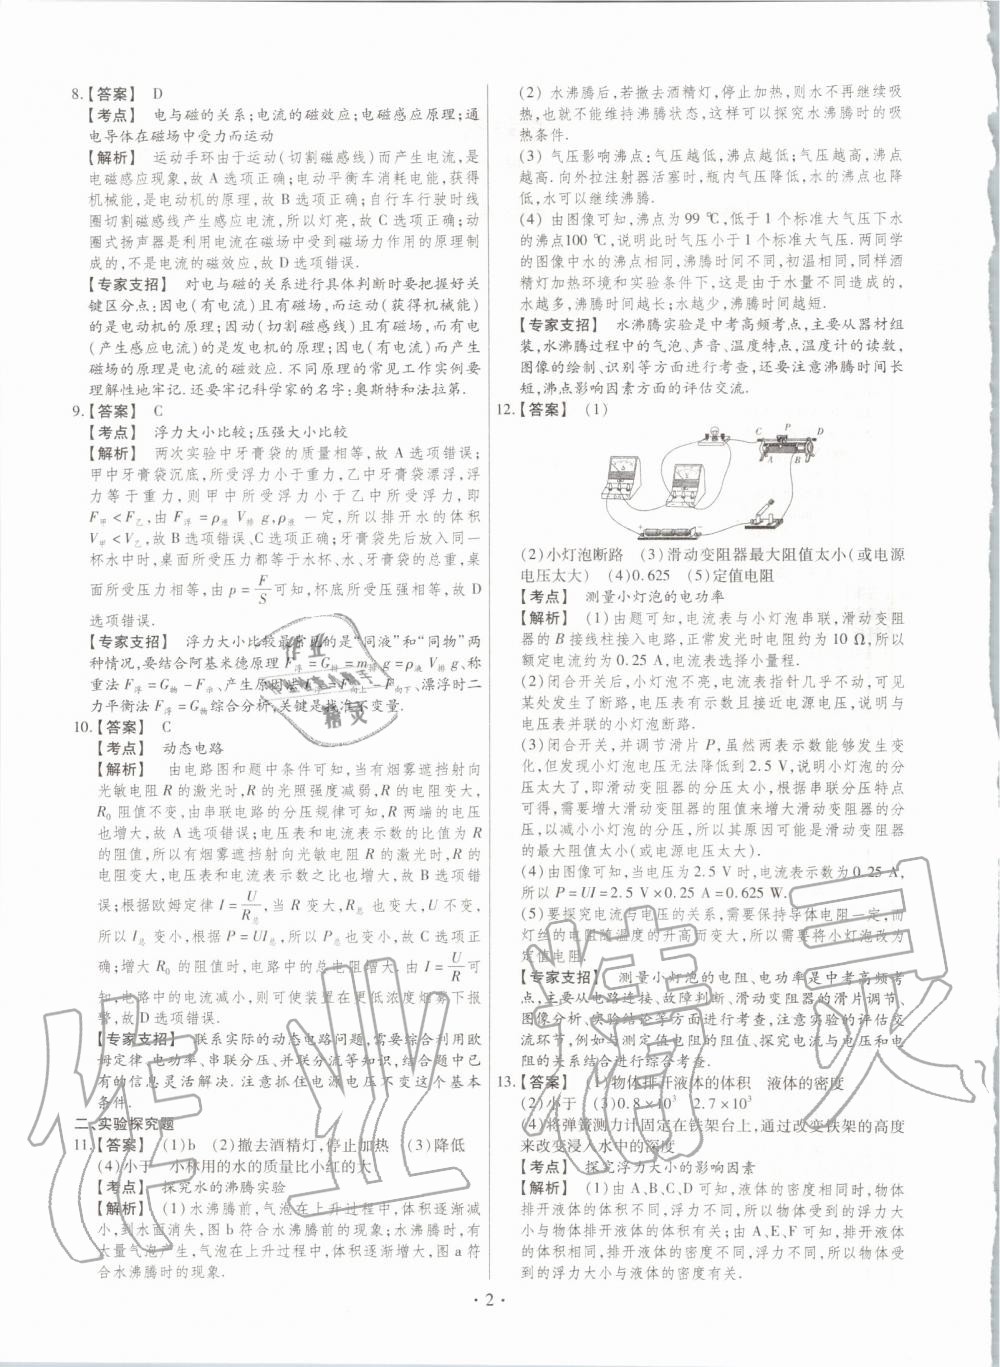 8.【答案】 D
【考点】 电与磁的关系;电流的磁效应;电磁感应原理;通
电导体在磁场中受力而运动
【解析】 运动手环由于运动(切割磁感线)而产生电流,是
电磁感应现象,故 A 选项正确;电动平衡车消耗电能,获得
机械能,是电动机的原理,故 B 选项正确;自行车行驶时线
圈切割磁感线产生感应电流,所以灯亮,故 C 选项正确;动
圈式扬声器是利用电流在磁场中受到磁场力作用的原理制
成的,不是电流的磁效应,故 D 选项错误.
【专家支招】 对电与磁的关系进行具体判断时要把握好关
键区分点:因电(有电流)且有磁场,而运动(获得机械能)
的是电动机的原理;因动(切割磁感线)且有磁场,而有电
(产生感应电流)的是发电机的原理;因电(有电流)而产生
磁场的原理是电流的磁效应.不同原理的常见工作实例要
理解性地牢记.还要牢记科学家的名字:奥斯特和法拉第.
9.【答案】 C
【考点】 浮力大小比较;压强大小比较
【解析】 两次实验中牙膏袋的质量相等,故 A 选项错误;
甲中牙膏袋沉底,所受浮力小于重力,乙中牙膏袋漂浮,浮
力等于重力,则甲中所受浮力小于乙中所受浮力,即
F甲<F乙,由 F浮=ρ液 V排 g,ρ液 一定,所以排开水的体积
V甲<V乙,故 B 选项错误、C 选项正确;牙膏袋先后放入同一
杯水中时,桌面所受压力都等于水杯、水、牙膏袋的总重,桌
面所受压力相等,由 p=F/S可知,杯底所受压强相等,故 D
选项错误.
【专家支招】 浮力大小比较最常见的是“同液”和“同物”两
种情况,要结合阿基米德原理 F浮=G排=m排 g=ρ液 V排 g、称
重法 F浮=G物-F示、产生原因法 F浮=F向上-F向下、漂浮时二
力平衡法 F浮=G物综合分析,关键是找准不变量.
10.【答案】 C
【考点】 动态电路
【解析】 由电路图和题中条件可知,当有烟雾遮挡射向
光敏电阻 R 的激光时,R 的光照强度减弱,R 的电阻变大,
R0 阻值不变,由串联电路的分压规律可知 R 两端的电压
也增大,故 A 选项错误;电压表和电流表示数的比值为 R
的阻值,所以有烟雾遮挡射向光敏电阻 R 的激光时,R 变
大,电压表和电流表示数之比也增大,故 B 选项错
误;根据欧姆定律 I=U/R总,当 R 变大,R总变大,U 不变,
所以 I总 变小,根据 P=UI总,所以 P 也变小,故 C 选项正
确;增大 R0 的阻值时,电路中的总电阻增大.由 I=U/R可
知,电路中的电流减小,则可使装置在更低浓度烟雾下报
警,故 D 选项错误.
【专家支招】 联系实际的动态电路问题,需要综合利用欧
姆定律、电功率、串联分压、并联分流等知识,结合题中已
有的信息灵活解决.注意抓住电源电压不变这个基本
条件.
二、实验探究题
11.【答案】 (1)b (2)撤去酒精灯,停止加热 (3)降低
(4)小于 小林用的水的质量比小红的大
【考点】 探究水的沸腾实验
【解析】 (1)水沸腾前,气泡在上升过程中,体积逐渐减
小,到水面消失,图 b 符合水沸腾前的现象;水沸腾时,有
大量气泡产生,气泡在上升过程中,体积逐渐增大,图 a 符
合水沸腾时的现象.
(2) 水沸腾后,若撤去酒精灯,停止加热,则水不再继续吸
热,也就不能维持沸腾状态,这样可以探究水沸腾时的吸
热条件.
(3) 气压影响沸点:气压越低,沸点越低;气压越高,沸点越
高.向外拉注射器活塞时,瓶内气压降低,水的沸点也降
低,水可以继续沸腾.
(4) 由图像可知,沸点为 99 ℃,低于 1 个标准大气压下水
的沸点100 ℃,说明此时气压小于 1 个标准大气压.两同学
的图像中水的沸点相同,沸腾时间不同,初温相同,同样酒
精灯加热环境和实验条件下,这是由于水量不同造成的,
水越多,沸腾时间越长;水越少,沸腾时间越短.
【专家支招】 水沸腾实验是中考高频考点,主要从器材组
装,水沸腾过程中的气泡、声音、温度特点,温度计的读数,
图像的绘制、识别等方面进行考查,还要注意沸腾时间长
短,沸点影响因素方面的评估交流.
12.【答案】 (1)
C P D
A B
(2)小灯泡断路 (3)滑动变阻器最大阻值太小(或电源
电压太大) (4)0.625 (5)定值电阻
【考点】 测量小灯泡的电功率
【解析】 (1)由题可知,电流表与小灯泡串联,滑动变阻
器的 B 接线柱接入电路,正常发光时电阻约为 10 Ω,所以
额定电流约为 0.25 A,电流表选择小量程.
(2)闭合开关后,小灯泡不亮,电流表指针几乎不动,可见
某处发生了断路,电压表有示数且接近电源电压,说明与
电压表并联的小灯泡断路.
(3)闭合开关,并调节滑片 P,虽然两表示数能够发生变
化,但发现小灯泡电压无法降低到 2.5 V,说明小灯泡的分
压太大了,即滑动变阻器的分压太小,根据串联分压特点
可得,需要增大滑动变阻器的阻值来增大滑动变阻器的分
压,以减小小灯泡的分压,所以其原因可能是滑动变阻器
的最大阻值太小(或电源电压太大).
(4)由图像可知,当电压为 2.5 V 时,电流表示数为 0.25 A,
所以 P=UI=2.5 V×0.25 A=0.625 W.
(5)要探究电流与电压的关系,需要保持导体电阻一定,而
灯丝的电阻随温度的升高而变大,所以需要将小灯泡改为
定值电阻.
【专家支招】 测量小灯泡的电阻、电功率是中考高频考
点,主要从电路连接、故障判断、滑动变阻器的滑片调节、
图像分析、实验结论等方面进行考查,注意实验的评估交
流环节,例如与测量定值电阻的阻值、探究电流与电压和电阻
的关系结合进行综合考查.
13.【答案】 (1)物体排开液体的体积 液体的密度
(2)小于 (3)0.8×10³ 2.7×10³
(4)将弹簧测力计固定在铁架台上,通过改变铁架的高度
来改变浸入水中的深度
【考点】 探究浮力大小的影响因素
【解析】 (1)由 A、B、C、D 可知,液体的密度相同时,物体
排开液体的体积不同,浮力不同,所以物体受到的浮力大
小与物体排开液体的体积有关;由 A、E、F 可知,排开液体
的体积相同,排开液体的密度不同,浮力不同,所以物体受
到的浮力大小与液体的密度有关.
· 2 ·
作业精灵
作业
精灵